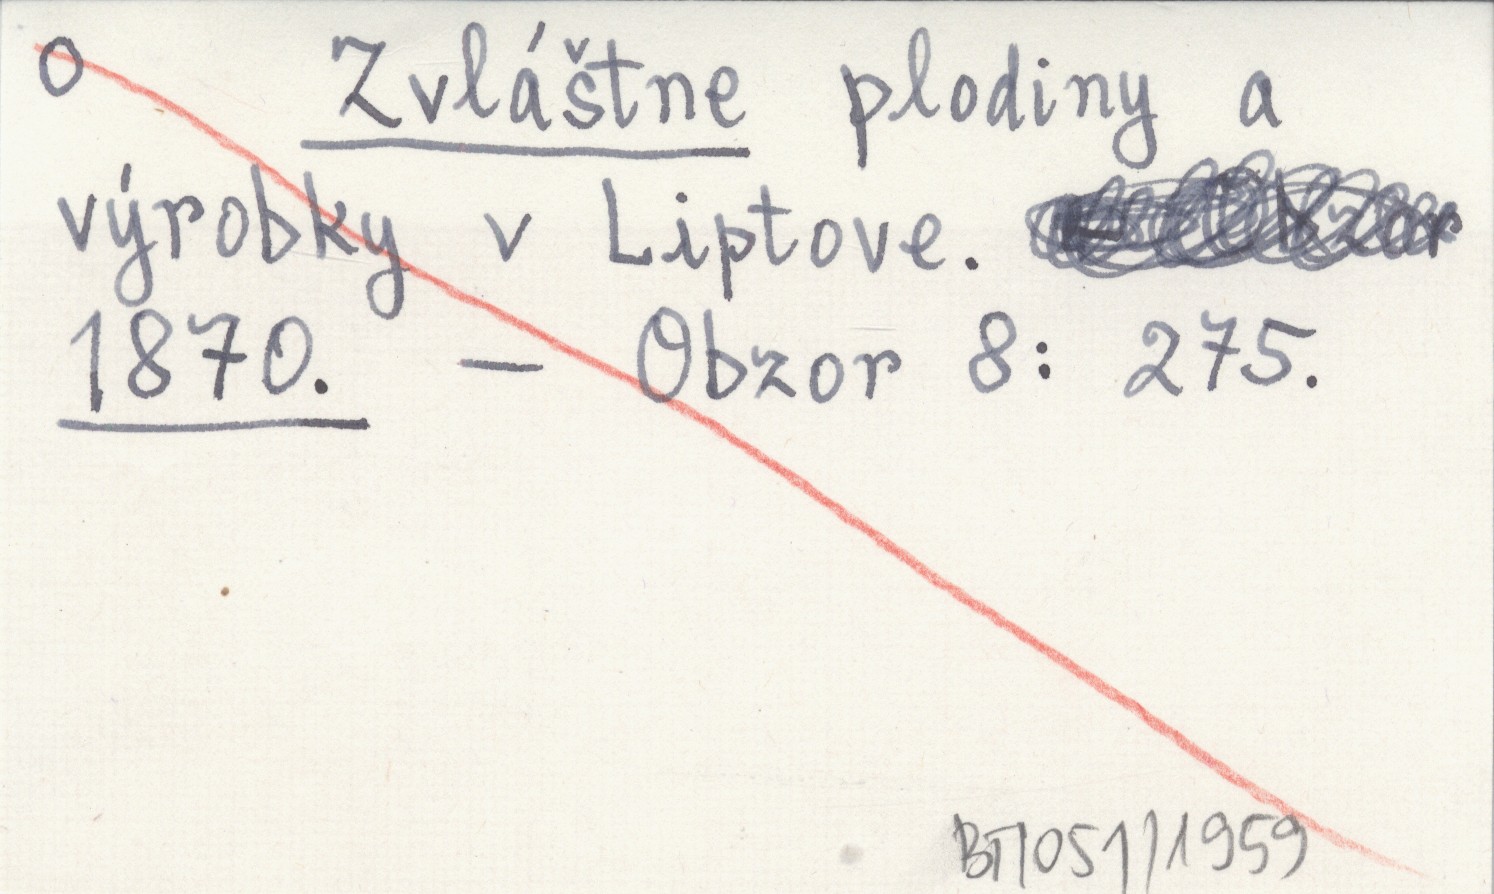 O Zvláštne plodiny a
výrobky v Liptove.
1870. — Obzor 8: 275.
BT/051/1959